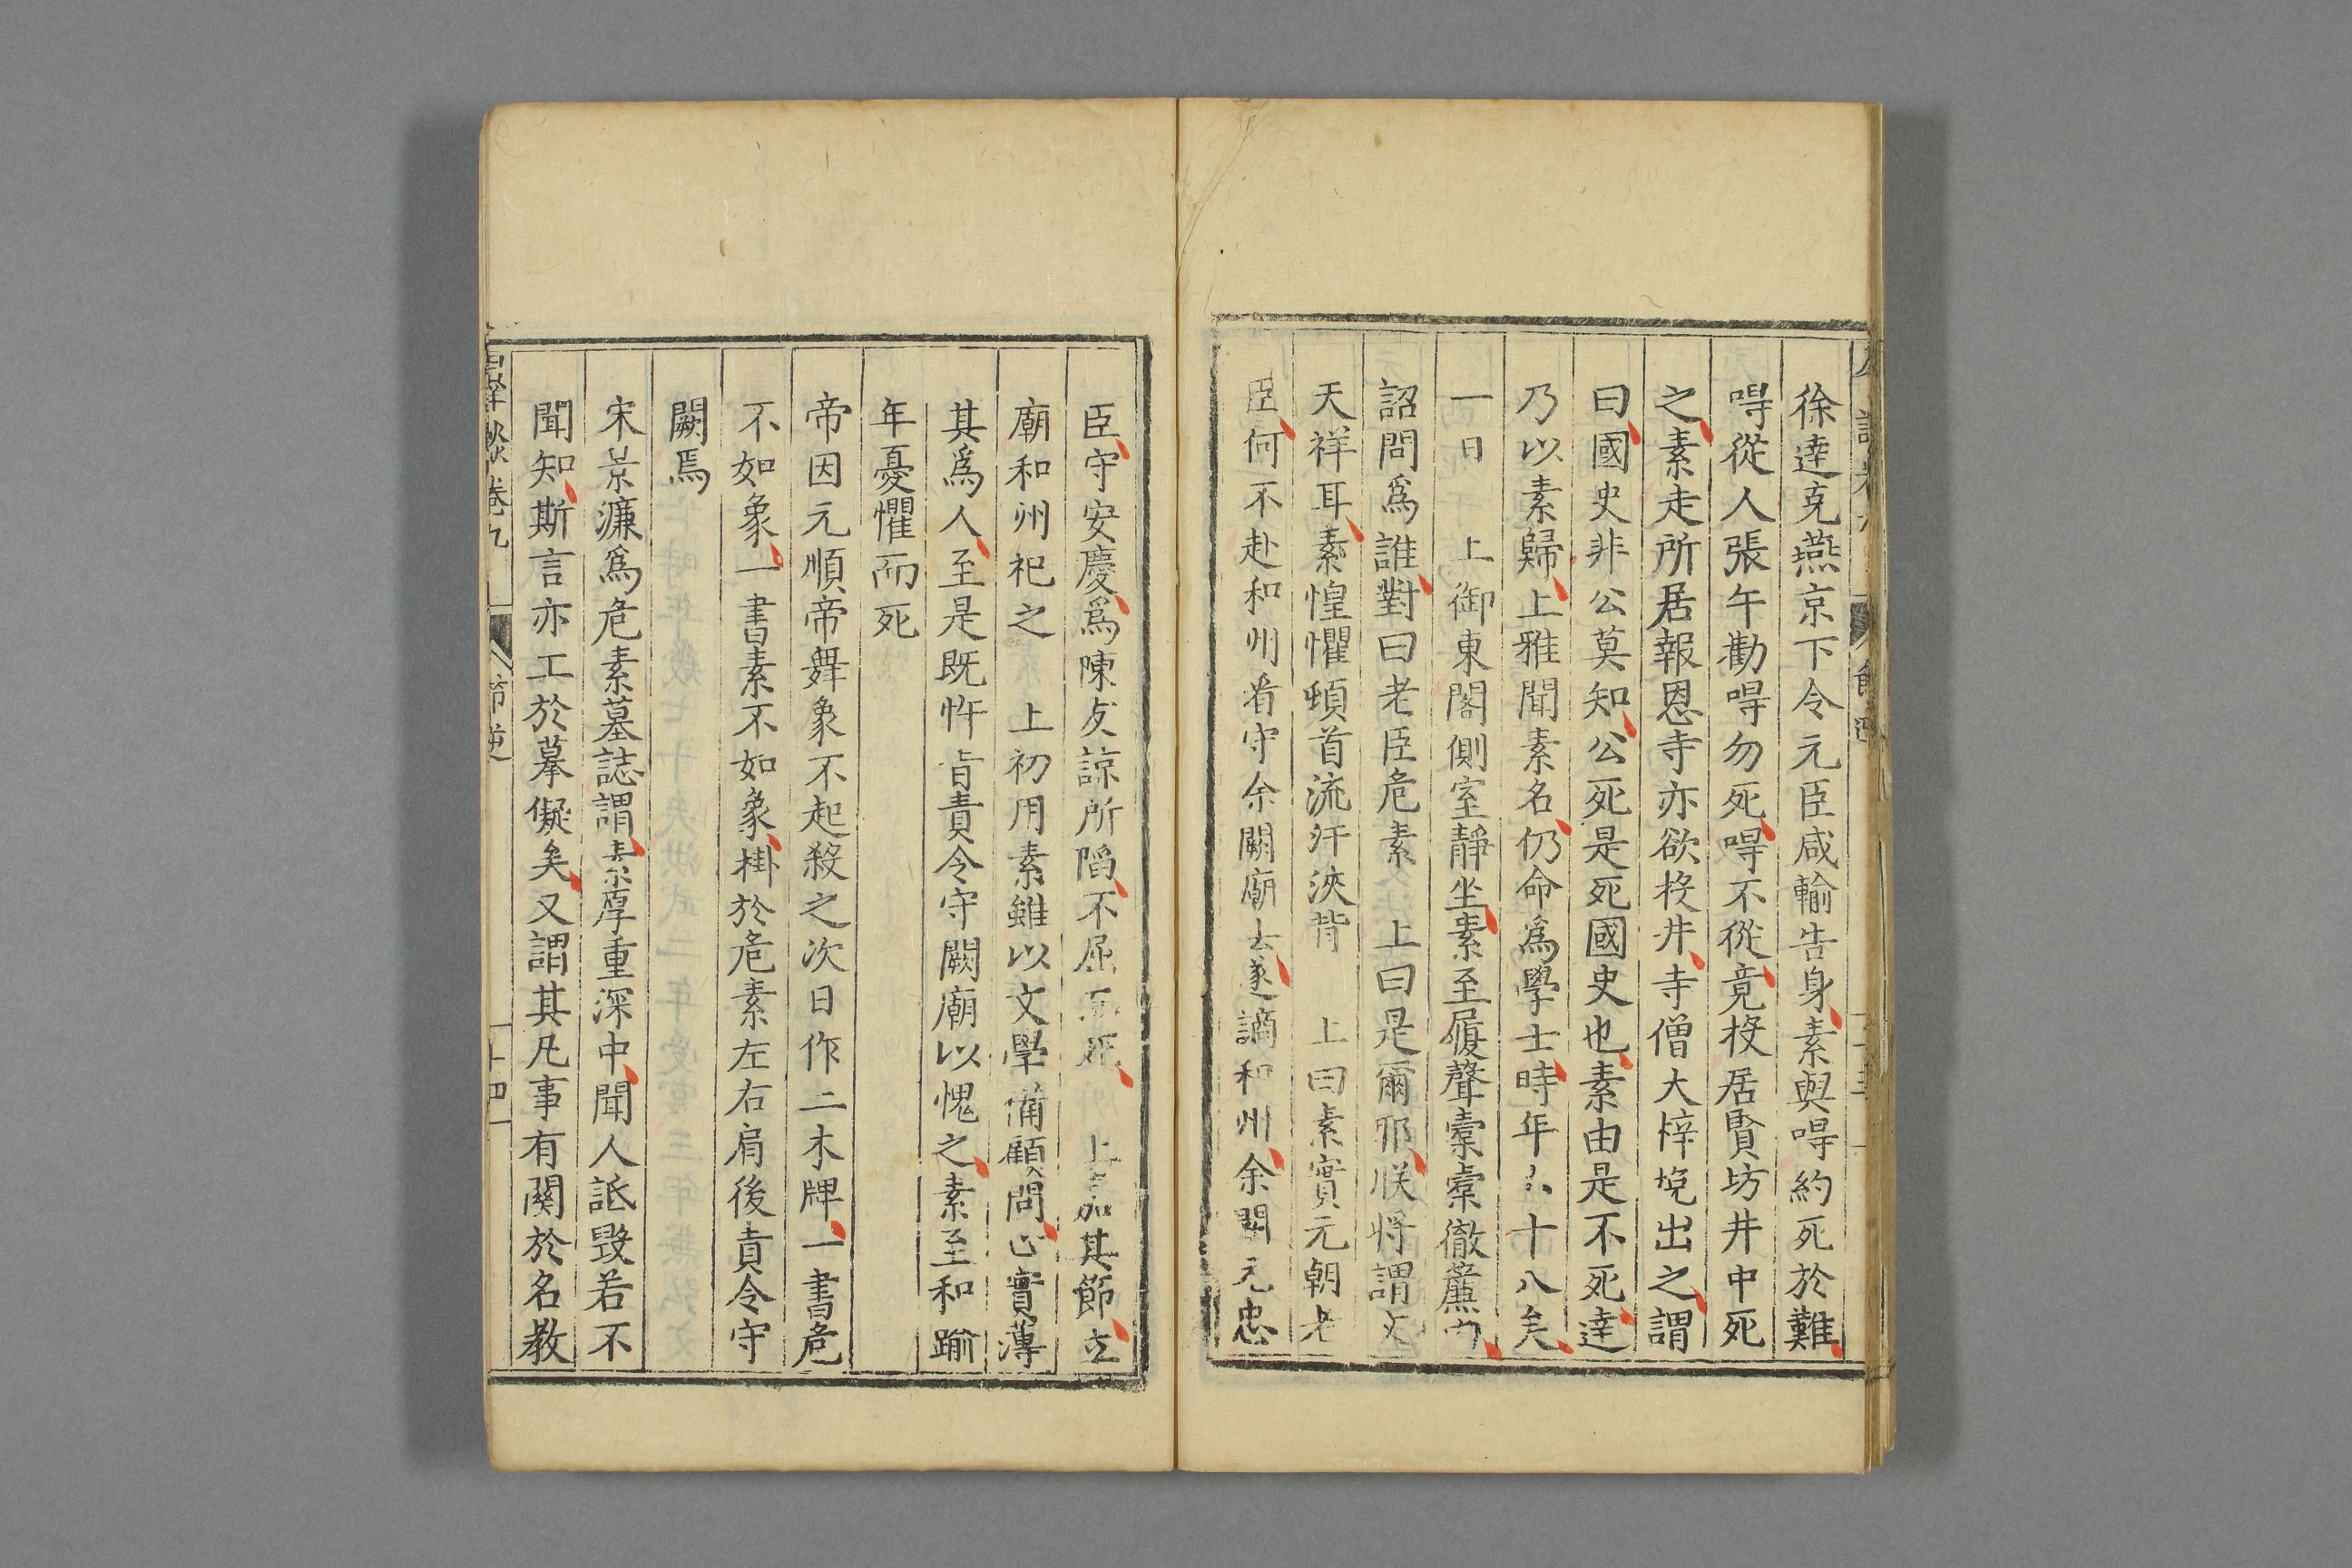 徐達克燕京下令元臣咸輸告身素與㝵約死於難
㝵從人張午勸㝵勿死㝵不從竟投居賢坊井中死
之素走所居報恩寺亦欲投井寺僧大梓挽出之謂
曰國史非公莫知公死是死國史也素由是不死達
乃以素歸上雅聞素名仍命爲學士時年六十八矣
一日 上御東閣側室靜坐素至履聲橐橐徹簾內
詔問爲誰對曰老臣危素 上曰是爾耶朕將謂文
天祥耳素惶懼頓首流汗浹背 上曰素實元朝老
臣何不赴和州看守余闕廟去遂謫和州余闕元忠
臣守安慶爲陳友諒所陷不屈而死 上嘉其節立
廟和州祀之 上初用素雖以文學備顧問心實薄
其爲人至是既忤旨責令守闕廟以愧之素至和踰
年憂懼而死
帝因元順帝舞象不起殺之次日作二木牌一書危
不如象一書素不如象掛於危素左右肩後責令守
闕焉
宋景濂爲危素墓誌謂素厚重深中聞人詆毀若不
聞知斯言亦工於摹儗矣又謂其凡事有關於名教
卷九 節逆 十四